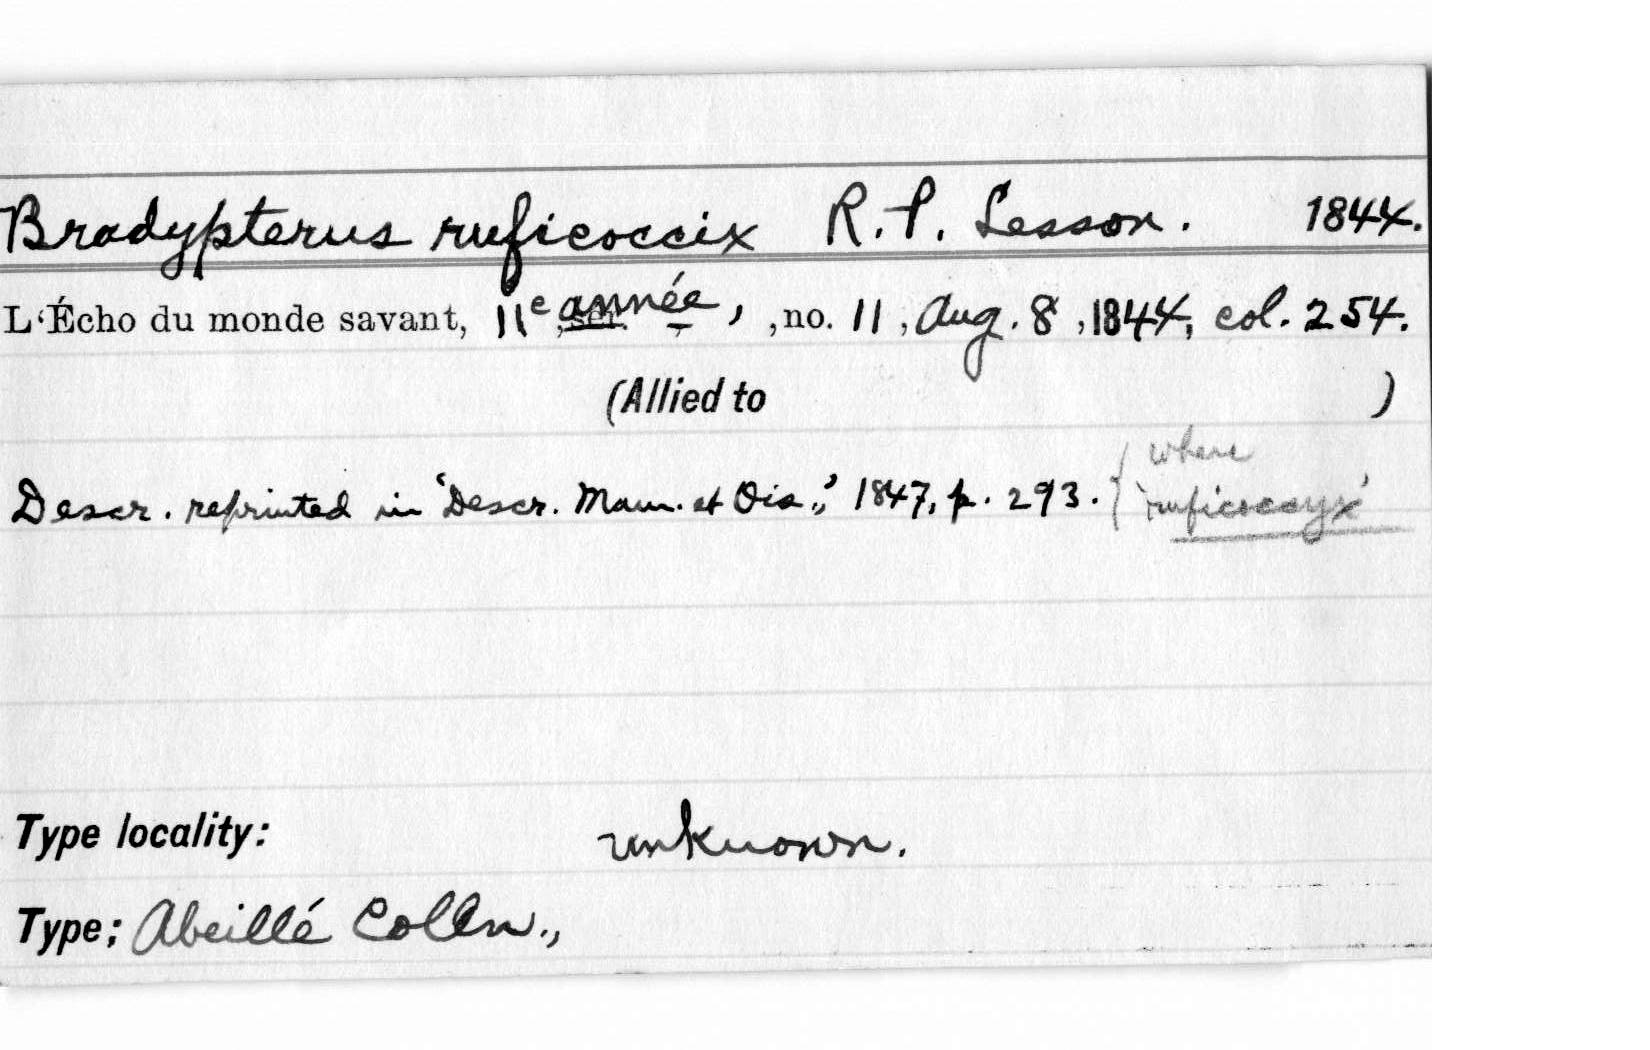 Bradypterus ruficoccix R. P. Lesson. 1844.
L'Écho du monde savant, 11e année, ser. , no. 11, Aug. 8, 1844, col. 254.
(Allied to )
Descr. reprinted in 'Descr. Mam. et Ois.,' 1847, p. 293. { where
'ruficoccyx'
Type locality: unknown.
Type; Abeillé Colln.,